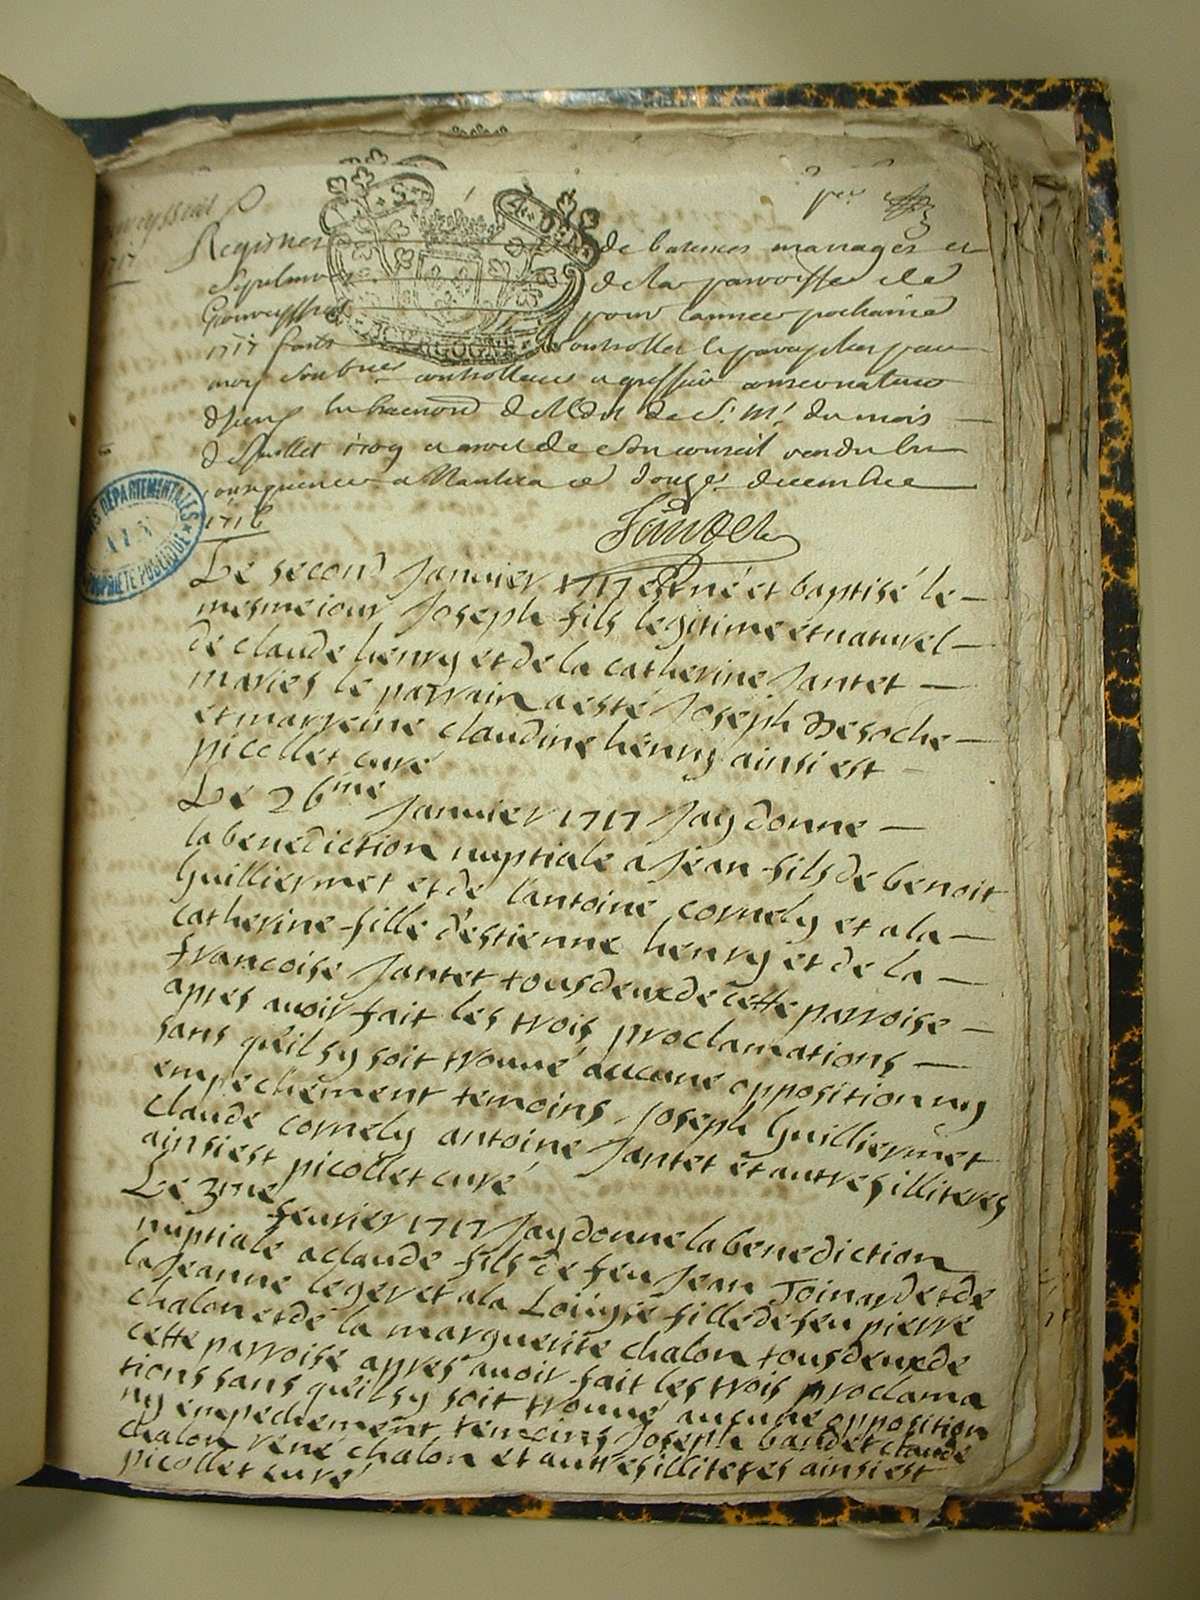 1717
Registres de batemes mariages et
Sepulture de la parroisse de
pour lannee prochaine
1717 controllee et paraphee par
moy controlleur et greffier conservateur
de St Mt du mois
de Juillet 1709 et arrest de son conseil rendu en
consequence a Nantua ce douze decembre
1716
ARCHIVES DÉPARTEMENTALES
AIN
PROPRIÉTÉ PUBLIQUE
Le second Janvier 1717 est né et baptisé le
mesme iour Joseph fils legitime et naturel
de claude henry et de la catherine Jantet
maries le parrain a esté Joseph Desoche
et marreine claudine henry ainsi est
picollet curé
Le 26me Janvier 1717 Jay donne
la benediction nuptiale a Jean fils de benoit
Guilliermet et de lantoine cornely et a la
catherine fille d'estienne henry et de la
francoise Jantet tous deux de cette parroise
apres avoir fait les trois proclamations
sans qu'il sy soit trouvé aucune opposition ny
empechement temoins Joseph Guilliermet
claude cornely antoine Jantet et autres illiteres
ainsi est picollet curé
Le 3me fevrier 1717 Jay donne la benediction
nuptiale a claude fils de feu Jean Joinard et de
la Jeanne leger et a la Loüyse fille de feu pierre
chalon et de la marguerite chalon tous deux de
cette parroise apres avoir fait les trois proclama
tions sans qu'il sy soit trouvé aucune opposition
ny empechement temoins Joseph baudet claude
chalon rené chalon et autres illiteres ainsi est
picollet curé